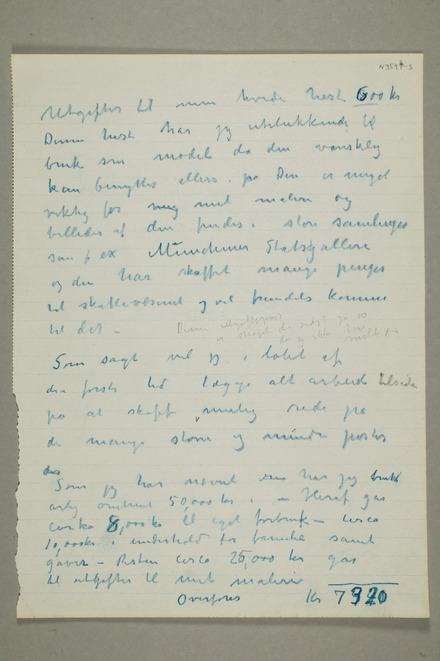 N 3594-3
Utgifter til min hvide hest 600 kr
Denne hest har jeg utelukkende til
bruk som model da den vanskelig
kan benyttes ellers. på Den er meget
viktig for mig med maleri og
billeder af den findes i store samlinger
som f ex Münchener Statsgalleri
og den har skaffet mange penger
til skattevæsnet og vil fremdeles komme
til det –
Denne
Som sagt vil jeg i løbet af
den første tid lægge alt arbeide tilside
på at skaffe mulig rede på
de mange større og mindre poster
Som jeg har nævnt har jeg brukt
årlig omtrent 50,000 kr. – Heraf går
cirka 8,000 kr til eget forbruk – circa
10,000 kr i underhold for familie samt
gaver – Resten circa 25,000 kr går
til utgifter til mit maleri
Overføres Kr 7320